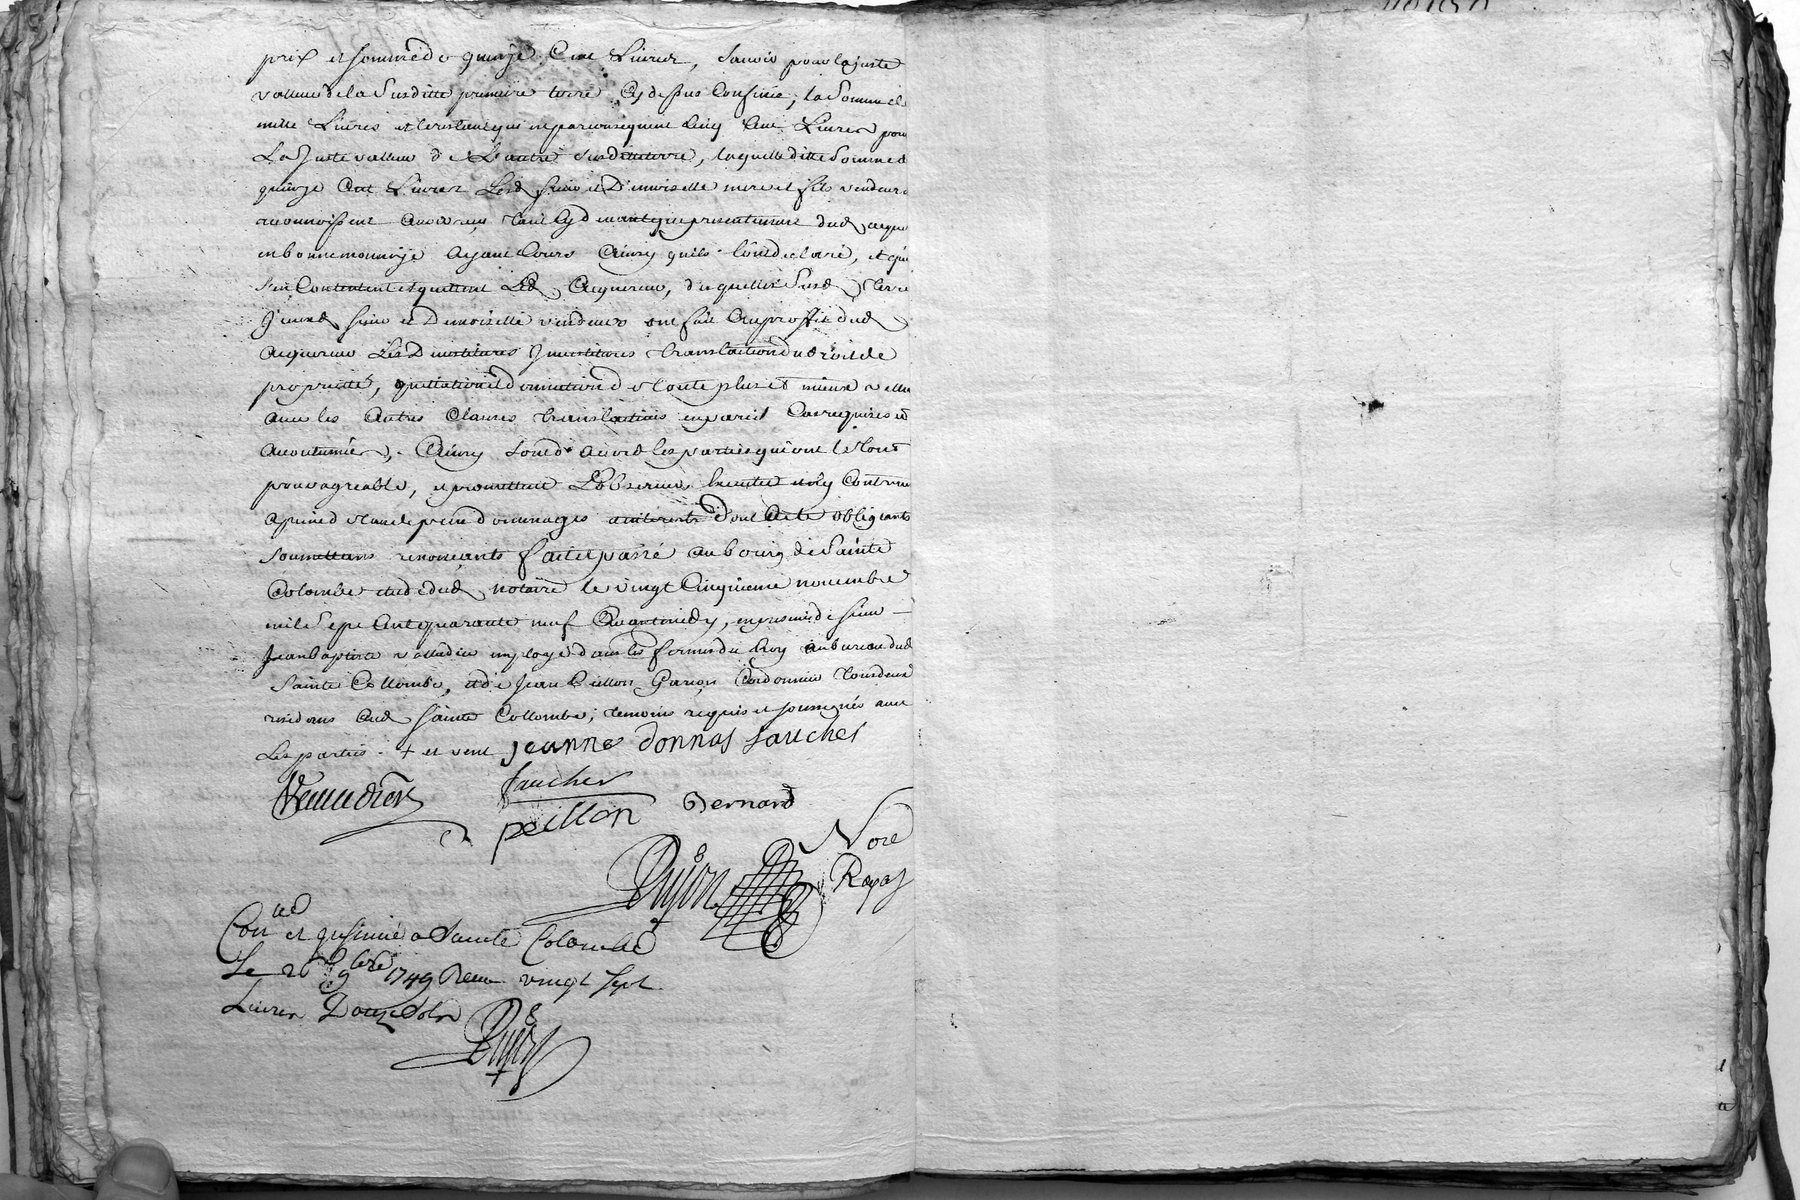 prix et somme de quinze Cent Livres, sçavoir pour la juste
valleur de la Susditte premiere terre Cy dessus Confinée, la Somme de
mille Livres et le restant qui est par consequent Cinq Cent Livres pour
La Juste valleur de L'autre susditte terre, laquelle ditte Somme de
quinze Cent Livres Lesd sieur et Demoiselle mere et fils vendeurs
reconnoissent avoir reçu tant Cy devant que presentement dud acque
en bonne monnoye ayant Cours Ainsy qu'ils l'ont declaré, et qui
s'en Contentent et quittent Led Acquereur, desquelles Susd terre
Iceux sieur et Demoiselle vendeurs ont fait Au proffit dud
acquereur Les Devestitures Investitures translation du droit de
proprieté, quittation et donnation de toute plus et mieux vallue
avec les Autres Clauses translatives en pareil Cas requises et
accoutumées, Ainsy sont d'accord les parties qui ont le tout
pour agreable, et promettent L'observer
a peine de tous depens dommages interets dont Acte obligeants
soumettans renonçants fait et passé au bourg de Sainte
Colombe etude dud notaire le vingt Cinquieme novembre
mil Sept Cent quarante neuf Avant midy, en presence de sieur
Jean Baptiste employé dans les fermes du Roy au bureau dud
Sainte Collombe, et de Jean Peillon Garçon Cordonnier tous deux
residans aud Sainte Collombe; temoins requis et soussignés avec
Les parties. + et vent jeanne donnas faucher
faucher
peillon Bernard
Nore
Royal
Dujon
Con et insinué a Sainte Colombe
Le 26 9bre 1749 Reçu vingt sept
Livres Douze Sols
Dujon